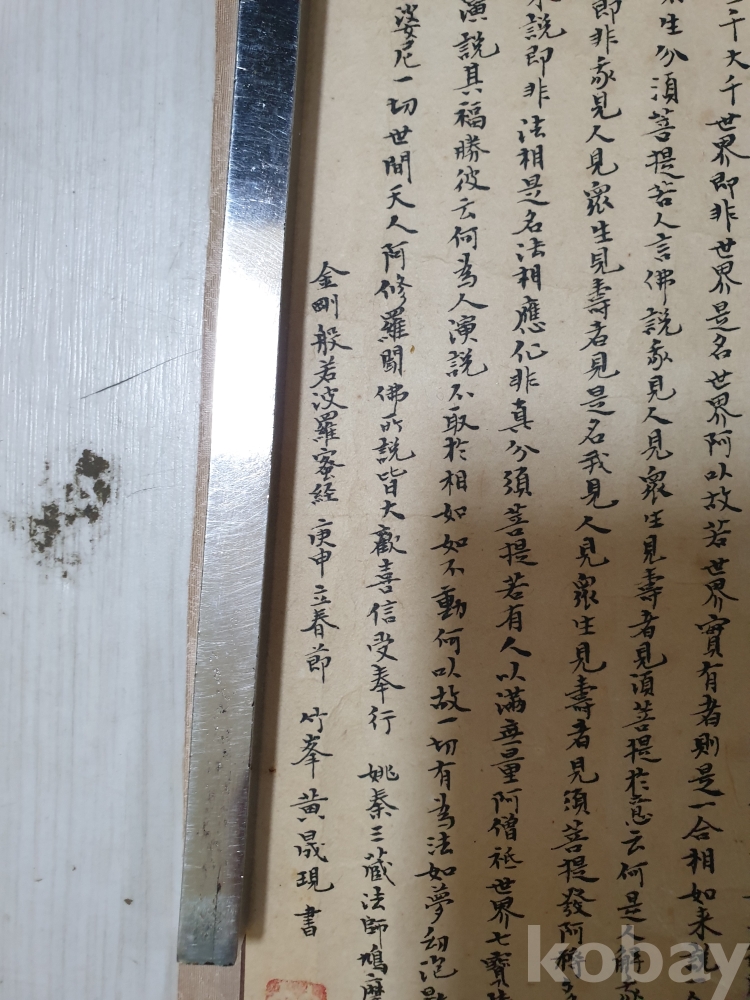 三千大千世界即非世界是名世界阿以故若世界實有者則是一合相如来說一
生分須菩提若人言佛說我見人見衆生見壽者見須菩提於意云何是人解
即非我見人見衆生見壽者見是名我見人見衆生見壽者見須菩提發阿耨多
說即非法相是名法相應化非真分須菩提若有人以滿無量阿僧祇世界七寶
演說其福勝彼云何為人演說不取於相如如不動何以故一切有為法如夢幻泡
婆尼一切世間天人阿修羅聞佛所說皆大歡喜信受奉行 姚秦三藏法師鳩摩
金剛般若波羅蜜経 庚申立春節 竹峯 黄晟現 書
kobay